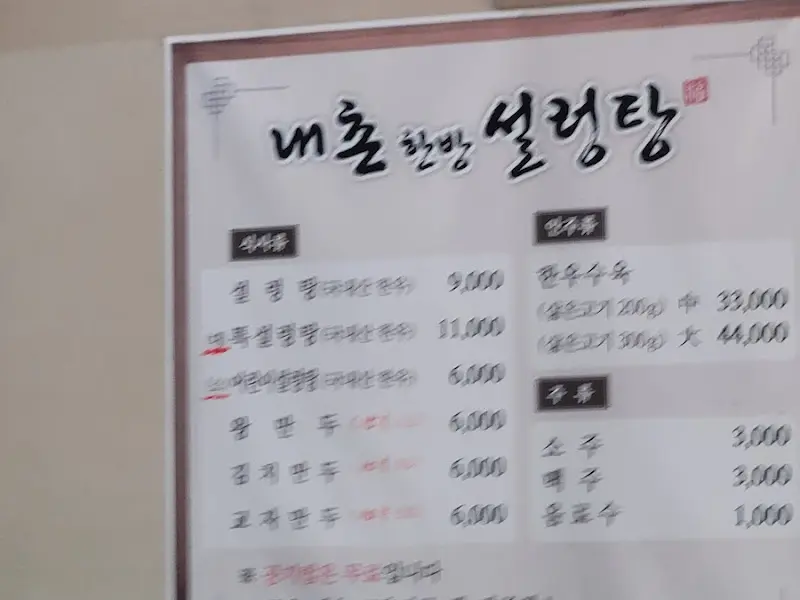 내촌 한방 설렁탕
식사류
설렁탕(국내산 한우) 9,000
특설렁탕(국내산 한우) 11,000
어린이설렁탕(국내산 한우) 6,000
왕만두 6,000
김치만두 6,000
6,000
※ 공기밥은 무료입니다
안주류
한우수육
(삶은고기 200g) 中 33,000
(삶은고기 300g) 大 44,000
주류
소주 3,000
맥주 3,000
음료수 1,000